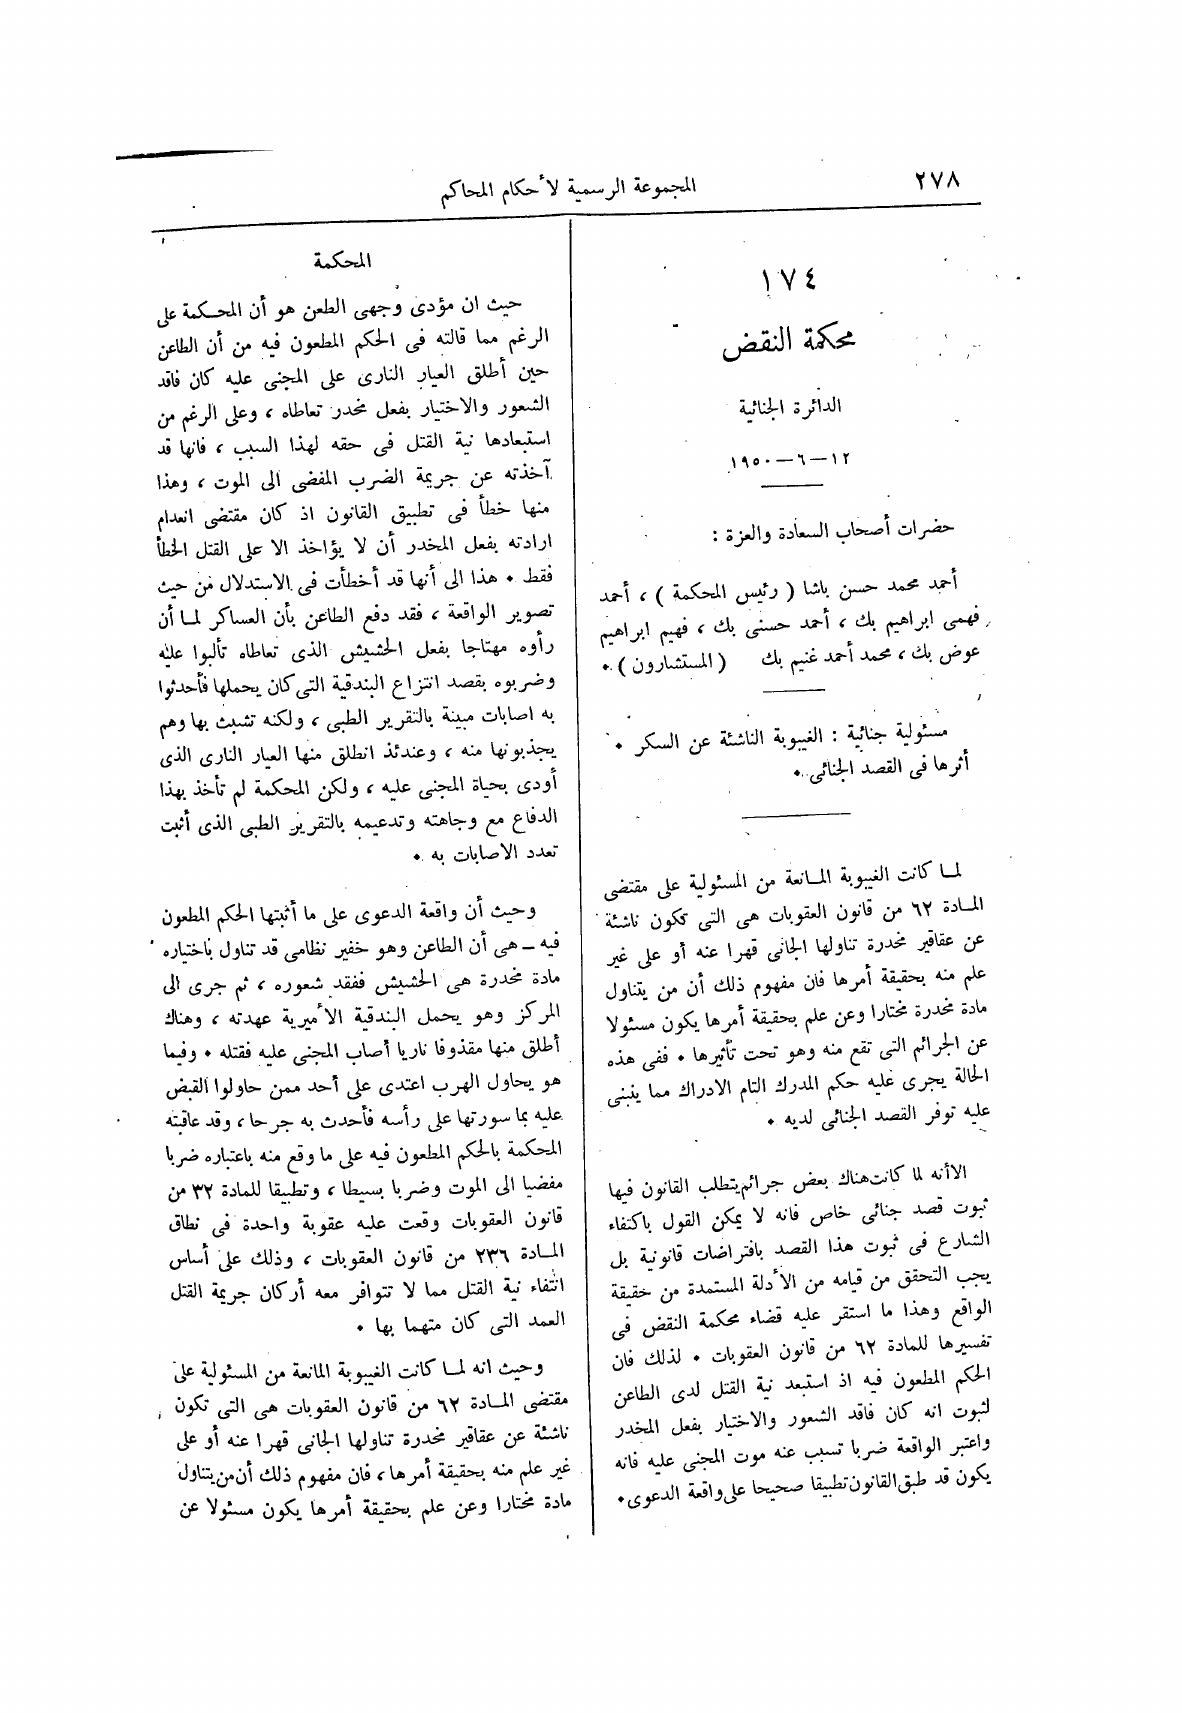 ٢٧٨
المجموعة الرسمية لأحكام المحاكم
١٧٤
محكمة النقض
الدائرة الجنائية
١٢ — ٦ — ١٩٥٠
حضرات أصحاب السعادة والعزة :
أحمد محمد حسن باشا ( رئيس المحكمة ) ، أحمد
فهمى ابراهيم بك ، أحمد حسنى بك ، فهيم ابراهيم
عوض بك ، محمد أحمد غنيم بك ( المستشارون ) .
مسئولية جنائية : الغيبوبة الناشئة عن السكر .
أثرها فى القصد الجنائى .
لمــا كانت الغيبوبة المـانعة من المسئولية على مقتضى
المــادة ٦٢ من قانون العقوبات هى التى تكون ناشئة
عن عقاقير مخدرة تناولها الجانى قهرا عنه أو على غير
علم منه بحقيقة أمرها فان مفهوم ذلك أن من يتناول
مادة مخدرة مختارا وعن علم بحقيقة أمرها يكون مسئولا
عن الجرائم التى تقع منه وهو تحت تأثيرها . ففى هذه
الحالة يجرى عليه حكم المدرك التام الادراك مما ينبنى
عليه توفر القصد الجنائى لديه .
الاأنه لما كانت هناك بعض جرائم يتطلب القانون فيها
ثبوت قصد جنائى خاص فانه لا يمكن القول باكتفاء
الشارع فى ثبوت هذا القصد بافتراضات قانونية بل
يجب التحقق من قيامه من الأدلة المستمدة من حقيقة
الواقع وهذا ما استقر عليه قضاء محكمة النقض فى
تفسيرها للمادة ٦٢ من قانون العقوبات . لذلك فان
الحكم المطعون فيه اذ استبعد نية القتل لدى الطاعن
لثبوت انه كان فاقد الشعور والاختيار بفعل المخدر
واعتبر الواقعة ضربا تسبب عنه موت المجنى عليه فانه
يكون قد طبق القانون تطبيقا صحيحا على واقعة الدعوى .
المحكمة
حيث ان مؤدى وجهى الطعن هو أن المحكمة على
الرغم مما قالته فى الحكم المطعون فيه من أن الطاعن
حين أطلق العيار النارى على المجنى عليه كان فاقد
الشعور والاختيار بفعل مخدر تعاطاه ، وعلى الرغم من
استبعادها نية القتل فى حقه لهذا السبب ، فانها قد
آخذته عن جريمة الضرب المفضى الى الموت ، وهذا
منها خطأ فى تطبيق القانون اذ كان مقتضى انعدام
ارادته بفعل المخدر أن لا يؤاخذ الا على القتل الخطأ
فقط . هذا الى أنها قد أخطأت فى الاستدلال من حيث
تصوير الواقعة ، فقد دفع الطاعن بأن العساكر لمــا أن
رأوه مهتاجا بفعل الحشيش الذى تعاطاه تألبوا عليه
وضربوه بقصد انتزاع البندقية التى كان يحملها فأحدثوا
به اصابات مبينة بالتقرير الطبى ، ولكنه تشبث بها وهم
يجذبونها منه ، وعندئذ انطلق منها العيار النارى الذى
أودى بحياة المجنى عليه ، ولكن المحكمة لم تأخذ بهذا
الدفاع مع وجاهته وتدعيمه بالتقرير الطبى الذى أثبت
تعدد الاصابات به .
وحيث أن واقعة الدعوى على ما أثبتها الحكم المطعون
فيه — هى أن الطاعن وهو خفير نظامى قد تناول باختياره
مادة مخدرة هى الحشيش ففقد شعوره ، ثم جرى الى
المركز وهو يحمل البندقية الأميرية عهدته ، وهناك
أطلق منها مقذوفا ناريا أصاب المجنى عليه فقتله . وفيما
هو يحاول الهرب اعتدى على أحد ممن حاولوا القبض
عليه بما سورتها على رأسه فأحدث به جرحا ، وقد عاقبته
المحكمة بالحكم المطعون فيه على ما وقع منه باعتباره ضربا
مفضيا الى الموت وضربا بسيطا ، وتطبيقا للمادة ٣٢ من
قانون العقوبات وقعت عليه عقوبة واحدة فى نطاق
المــادة ٢٣٦ من قانون العقوبات ، وذلك على أساس
انتفاء نية القتل مما لا تتوافر معه أركان جريمة القتل
العمد التى كان متهما بها .
وحيث انه لمــا كانت الغيبوبة المانعة من المسئولية على
مقتضى المــادة ٦٢ من قانون العقوبات هى التى تكون
ناشئة عن عقاقير مخدرة تناولها الجانى قهرا عنه أو على
غير علم منه بحقيقة أمرها ، فان مفهوم ذلك أن من يتناول
مادة مختارا وعن علم بحقيقة أمرها يكون مسئولا عن